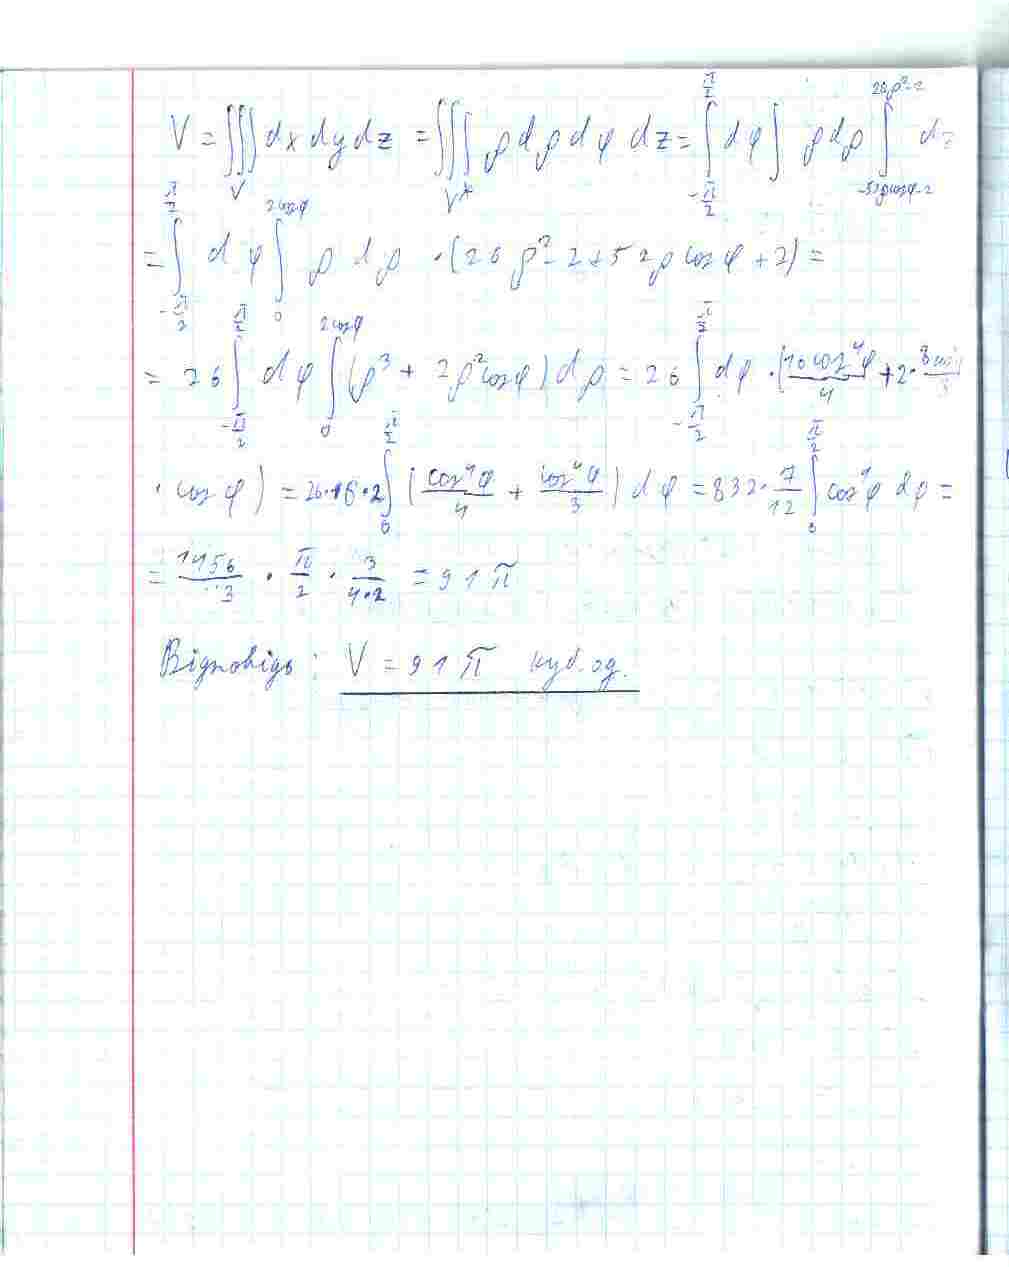 V = ∭_V dx dy dz = ∭_{V*} ρ dρ dφ dz = ∫_{-π/2}^{π/2} dφ ∫ ρ dρ ∫_{-52ρcosφ-2}^{26ρ²-2} dz
= ∫_{-π/2}^{π/2} dφ ∫_0^{2cosφ} ρ dρ · (26ρ² - 2 + 52ρ cosφ + 2) =
= 26 ∫_{-π/2}^{π/2} dφ ∫_0^{2cosφ} (ρ³ + 2ρ² cosφ) dρ = 26 ∫_{-π/2}^{π/2} dφ · (16cos⁴φ/4 + 2 ·
· cosφ) = 26·16·2 ∫_0^{π/2} (cos⁴φ/4 + cos⁴φ/3) dφ = 832 · 7/12 ∫_0^{π/2} cos⁴φ dφ =
= 1456/3 · π/2 · 3/(4·2) = 91π
Відповідь: V = 91π куб. од.